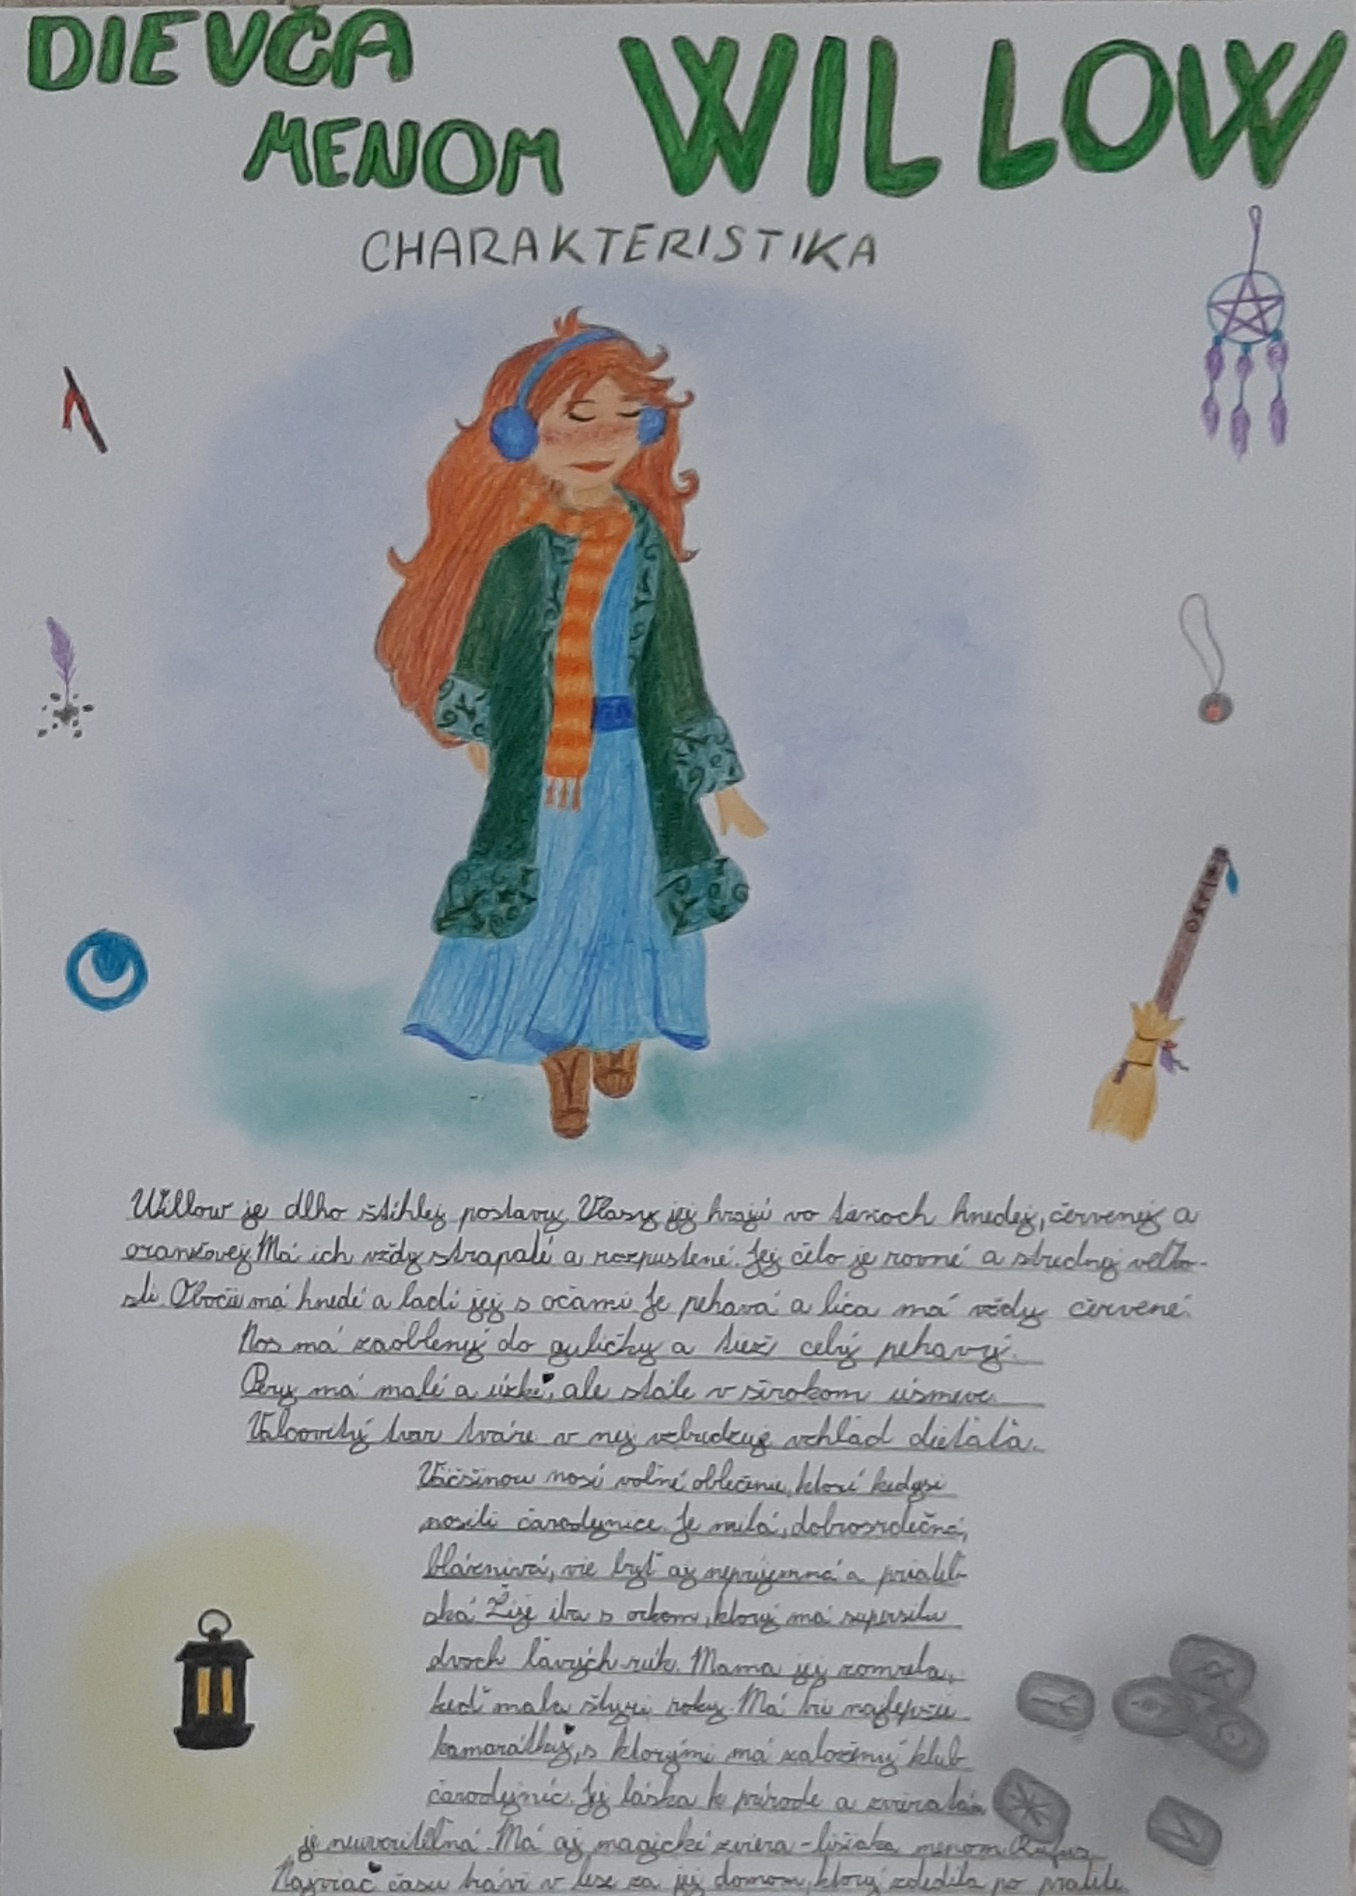 DIEVČA
MENOM WILLOW
CHARAKTERISTIKA
Willow je dlho štíhlej postavy. Vlasy jej hrajú vo tónoch hnedej, červenej a
oranžovej. Má ich vždy strapaté a rozpustené. Jej čelo je rovné a strednej veľko-
sti. Obočie má hnedé a ladí jej s očami. Je pehavá a líca má vždy červené.
Nos má zaoblený do guličky a tiež celý pehavý.
Pery má malé a úzke, ale stále v širokom úsmeve.
Valcovitý tvar tváre v nej vzbudzuje vzhľad dieťaťa.
Väčšinou nosí voľné oblečenie, ktoré kedysi
nosili čarodejnice. Je milá, dobrosrdečná,
bláznivá, vie byť aj nepríjemná a priateľ-
ská. Žije iba s otcom, ktorý má supersilu
dvoch ľavých rúk. Mama jej zomrela,
keď mala štyri roky. Má tri najlepšie
kamarátky, s ktorými má založený klub
čarodejníc. Jej láska k prírode a zvieratám
je neuveriteľná. Má aj magické zviera - lišiaka menom Rufus.
Najviac času trávi v lese za jej domom, ktorý zdedila po pratete.